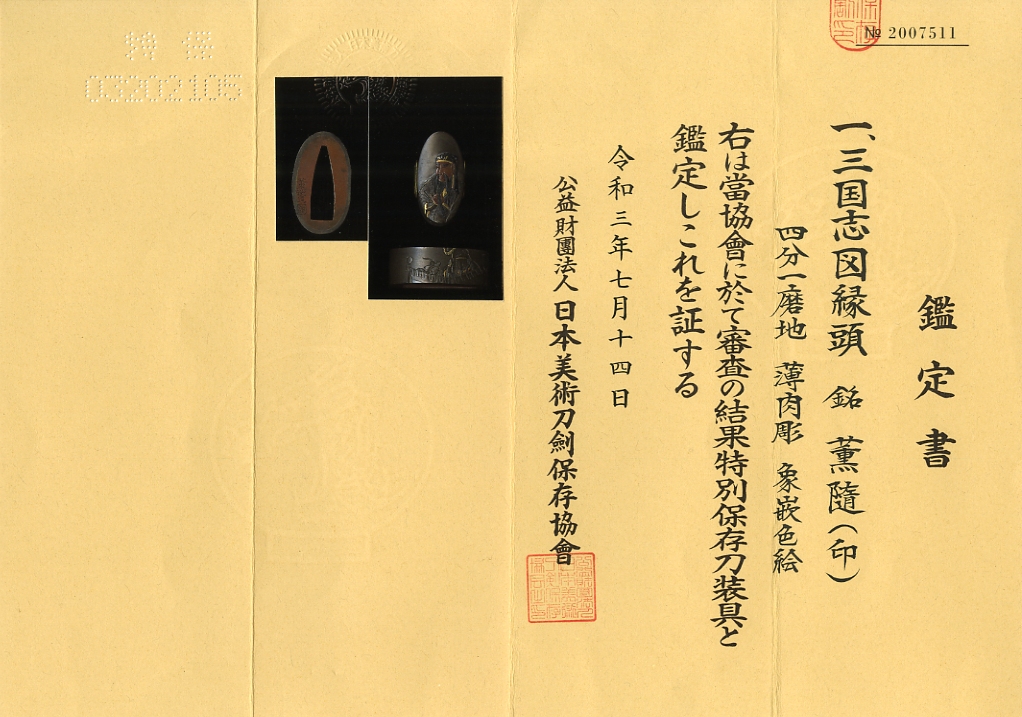 № 2007511
鑑定書
一、三国志図縁頭 銘 薫随(印)
四分一磨地 薄肉彫 象嵌色絵
右は當協會に於て審査の結果特別保存刀装具と
鑑定しこれを証する
令和三年七月十四日
公益財團法人 日本美術刀劍保存協會
特保
03202105